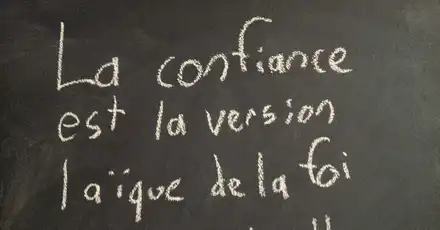 La confiance
est la version
laïque de la foi